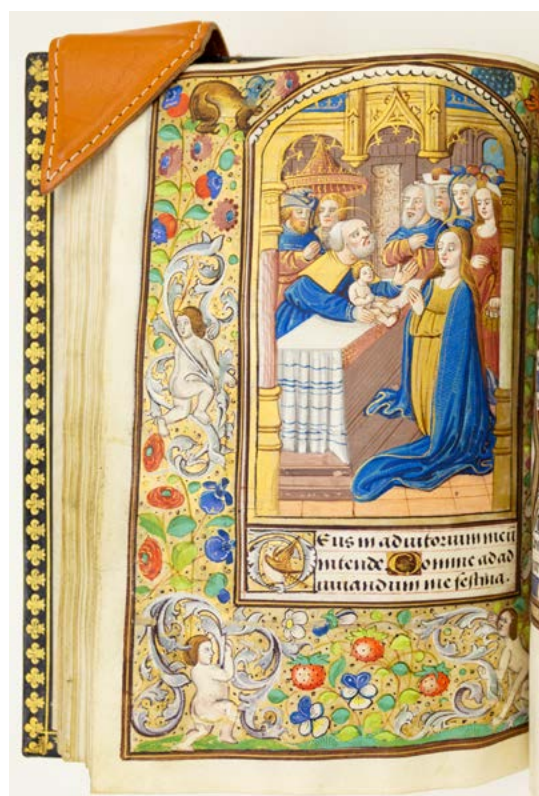 Deus in adiutorium meū
intende. Domine ad ad
iuuandum me festina.